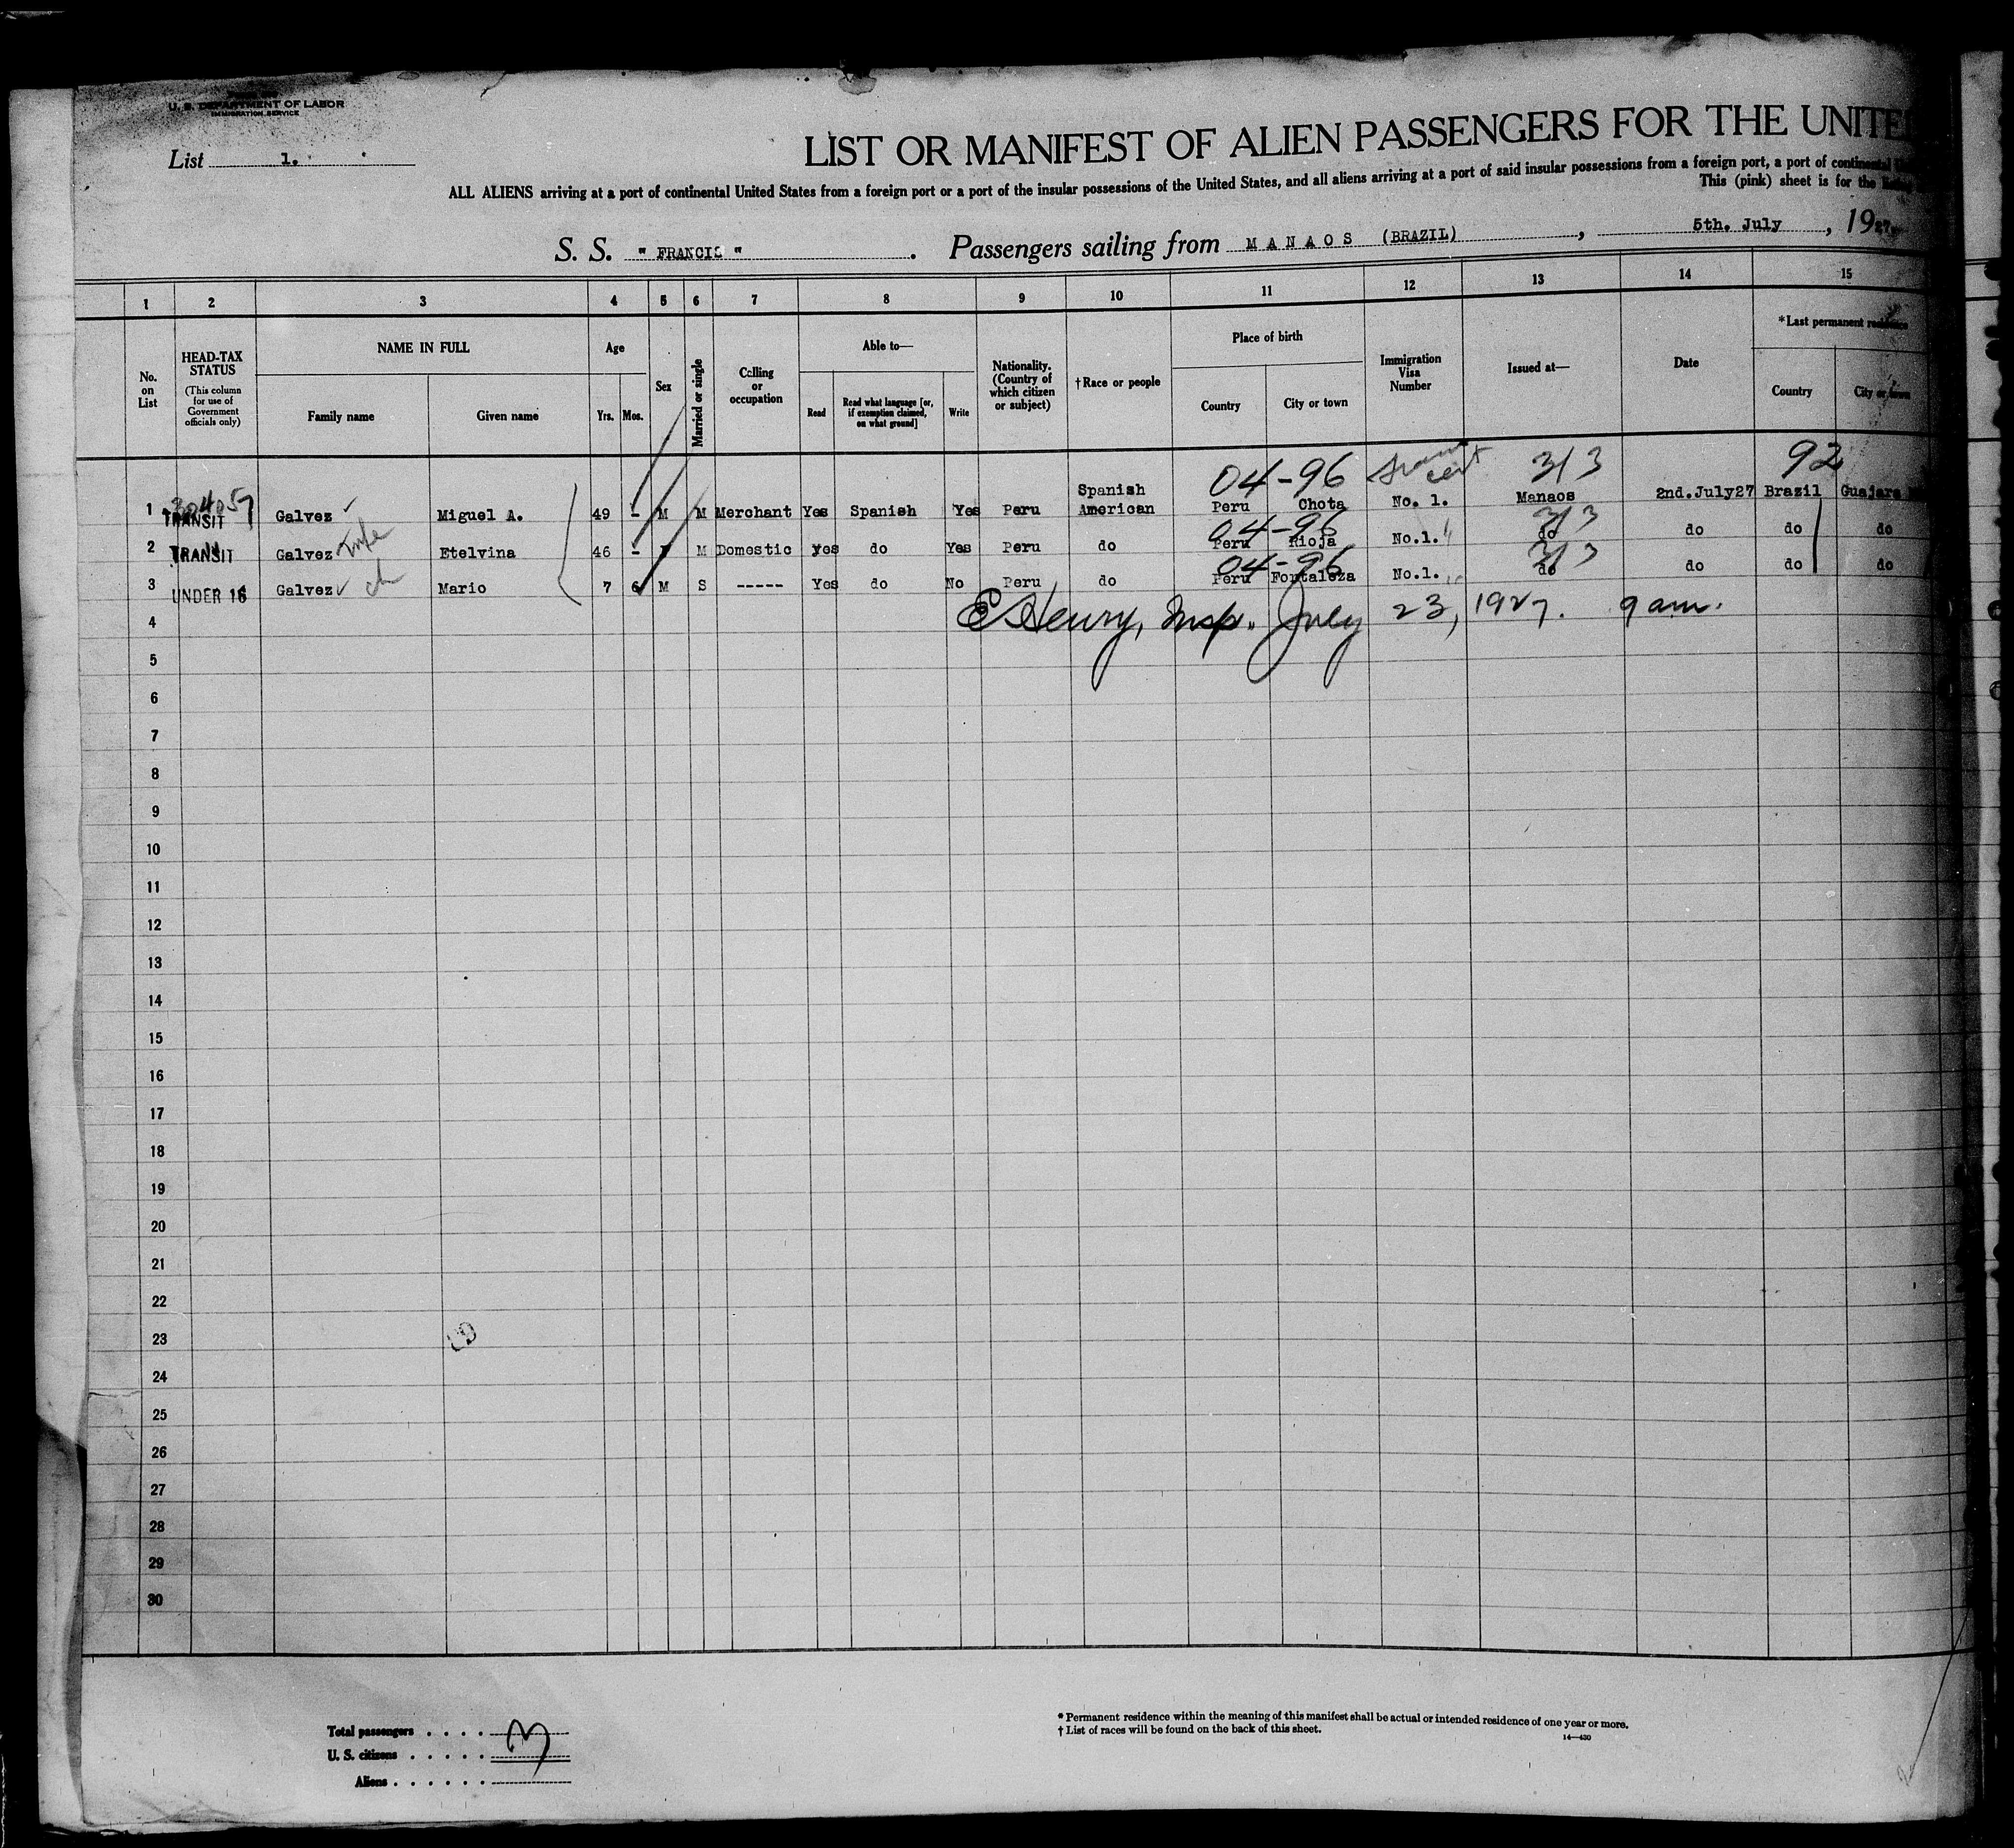 U. S. DEPARTMENT OF LABOR
IMMIGRATION SERVICE
List 1.
LIST OR MANIFEST OF ALIEN PASSENGERS FOR THE UNITE
ALL ALIENS arriving at a port of continental United States from a foreign port or a port of the insular possessions of the United States, and all aliens arriving at a port of said insular possessions from a foreign port, a port of continental
This (pink) sheet is for the
S. S. " FRANCIS " . Passengers sailing from MANAOS (BRAZIL) , 5th. July , 1927.
1 2 3 4 5 6 7 8 9 10 11 12 13 14 15
No. on List
HEAD-TAX STATUS
(This column for use of Government officials only)
NAME IN FULL
Family name Given name
Age
Yrs. Mos.
Sex
Married or single
Calling or occupation
Able to—
Read Read what language [or, if exemption claimed, on what ground] Write
Nationality. (Country of which citizen or subject)
†Race or people
Place of birth
Country City or town
Immigration Visa Number
Issued at—
Date
*Last permanent residence
Country City or town
04-96 313 92
1 TRANSIT Galvez Miguel A. 49 - M M Merchant Yes Spanish Yes Peru Spanish American Peru Chota No. 1. Manaos 2nd.July27 Brazil Guajara
04-96 313
2 TRANSIT Galvez Etelvina 46 - F M Domestic Yes do Yes Peru do Peru Rioja No.1. do do do do
04-96 313
3 UNDER 16 Galvez ch Mario 7 6 M S ----- Yes do No Peru do Peru Fortaleza No.1. do do do do
4 Henry, Insp. July 23, 1927. 9 am.
5
6
7
8
9
10
11
12
13
14
15
16
17
18
19
20
21
22
23
24
25
26
27
28
29
30
Total passengers . . . . 3
U. S. citizens . . . . .
Aliens . . . . . .
* Permanent residence within the meaning of this manifest shall be actual or intended residence of one year or more.
† List of races will be found on the back of this sheet.
14—430